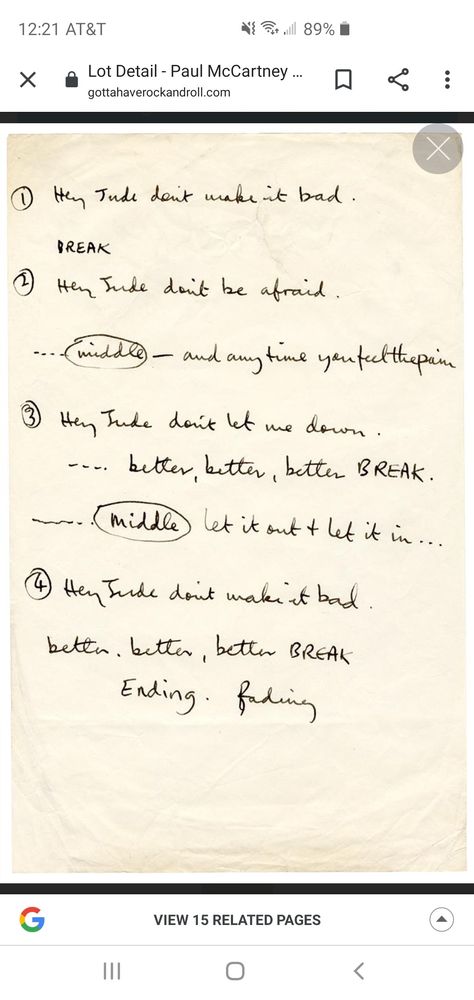 12:21 AT&T 89%
Lot Detail - Paul McCartney ...
gottahaverockandroll.com
① Hey Jude don't make it bad.
BREAK
② Hey Jude don't be afraid.
.... middle — and anytime you feel the pain
③ Hey Jude don't let me down.
.... better, better, better BREAK.
.... middle let it out + let it in ...
④ Hey Jude don't make it bad.
better. better, better BREAK
Ending. fading
VIEW 15 RELATED PAGES